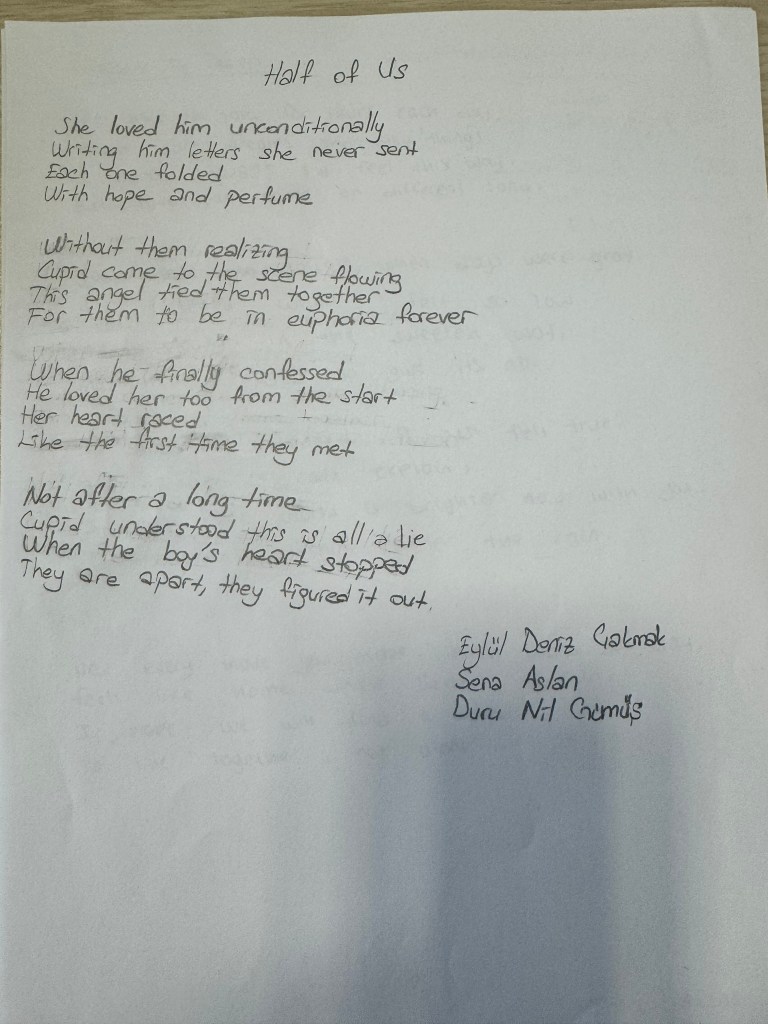 Half of Us
She loved him unconditionally
Writing him letters she never sent
Each one folded
With hope and perfume
Without them realizing
Cupid come to the scene flowing
This angel tied them together
For them to be in euphoria forever
When he finally confessed
He loved her too from the start
Her heart raced
Like the first time they met
Not after a long time
Cupid understood this is all a lie
When the boy's heart stopped
They are apart, they figured it out.
Eylül Deniz Çakmak
Sena Aslan
Duru Nil Gümüş